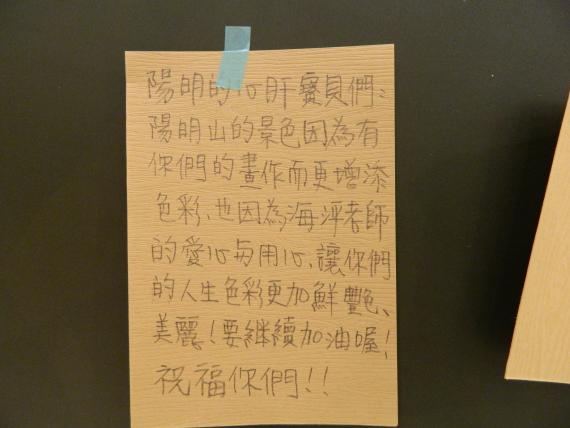 陽明的心肝寶貝們:
陽明山的景色因為有
你們的畫作而更增添
色彩、也因為海泙老師
的愛心與用心、讓你們
的人生色彩更加鮮艷、
美麗!要繼續加油喔!
祝福你們!!